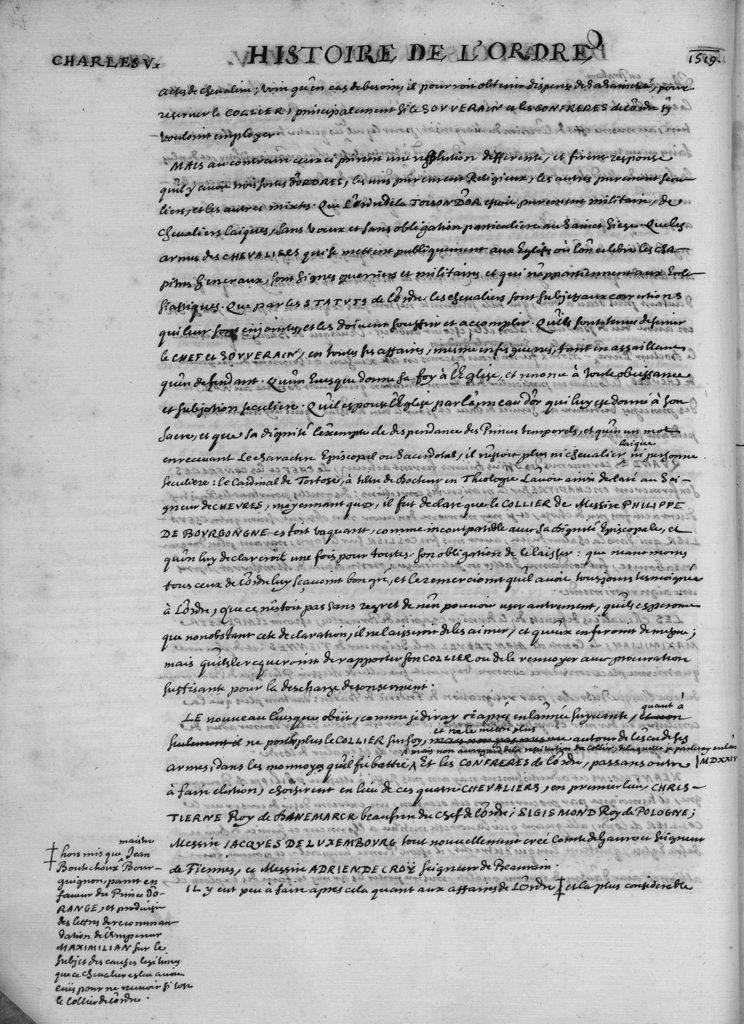 CHARLES V.
HISTOIRE DE L'ORDRE
1519.
actes de chevalier; voire qu'en cas de besoin, il pourroit obtenir dispense de sa Sainteté, pour
reservir le COLLIER, principalement si le SOUVERAIN et les CONFRERES de l'ordre l'y
vouloint employer.
MAIS au contraire ceux ci prirent une resolution differente, et firent response
qu'il y avoit trois sortes d'ORDRES, les uns purement Religieux, les autres purement secu-
liers, et les autres mixts. Que l'ordre de la TOISON D'OR estoit purement militaire, de
chevaliers laïques, sans voeux et sans obligation particuliere au Sainct Siege. Que les
armes des CHEVALIERS qui se mettent publiquement aux Eglises où l'on celebre les cha-
pitres Generaux, sont signes guerriers et militaires et qui n'appartiennent aux Eccle-
siastiques. Que par les STATUTS de l'ordre les chevaliers sont subjets aux corrections
qui leur sont enjointes, et les doivent souffrir et accomplir. Qu'ils sont tenus de servir
le CHEF et SOUVERAIN, en toutes ses affaires, mesme en ses guerres, tant en assaillant
qu'en defendant. Qu'un Evesque donne sa foy à l'Eglise, et renonce à toute obeissance
et subjection seculiere. Qu'il espouse l'Eglise par l'anneau d'or qui luy est donné à son
Sacre, et que sa dignité l'exempte de despendance des Princes temporels, et qu'en un mot
en recevant le charactere Episcopal ou Sacerdotal, il n'estoit plus ni chevalier laique ni personne
seculiere: le Cardinal de Tortose, à tiltre de Docteur en Theologie l'avoit ainsi declaré au Sei-
gneur de CHEVRES, moyennant quoy, il fut declaré que le COLLIER de Messire PHILIPPE
DE BOURGONGNE estoit vaquant, comme incompatible avec sa dignité Episcopale, et
qu'on luy declareroit une fois pour toutes son obligation de le laisser: que neanmoins
tous ceux de l'ordre luy sçavoint bon gré, et le remercioint qu'il avoit tousjours tesmoigné
à l'ordre, que ce n'estoit pas sans regret de n'en pouvoir user autrement, qu'ils esperoint
que nonobstant cete declaration, il ne laisseroit de les aimer, et qu'eux en feroint de mesme;
mais qu'ils le requeroint de rapporter son COLLIER ou de le renvoyer avec procuration
suffisante pour la descharge de son serment.
LE nouveau Evesque obëit, comme je diray ci après en l'année suyvante, quant à
ne porter plus le COLLIER sur soy, et ne le mettre plus autour de l'escu de ses
armes, dans les monnoyes qu'il fit battre, mais non à la restitution du collier, de laquelle je parleray en l'an
MDXXIV
Et les CONFRERES de l'ordre, passans outre
à faire election, choisirent en lieu de ces quatre CHEVALIERS, en premier lieu, CHRIS-
TIERNE Roy de DANEMARCK beaufrere du chef de l'ordre; SIGISMOND Roy de POLOGNE;
Messire JACQUES DE LUXEMBOURG tout nouvellement creé Comte de Gavre et Seigneur
de Fiennes, et Messire ADRIEN DE CROŸ Seigneur de Beaurain.
IL y eut peu à faire après cela quant aux affaires de l'ordre ‡ et la plus considerable
‡ hors mis que maistre Jean
Bontechoux Bour-
guignon, parut en
faveur du Prince d'O-
RANGE, et produisit
des lettres de recomman-
dation de l'Empereur
MAXIMILIAN sur le
subject des causes legitimes
que ce chevalier esleu avoit
eües pour ne recevoir si tost
le Collier de l'ordre.